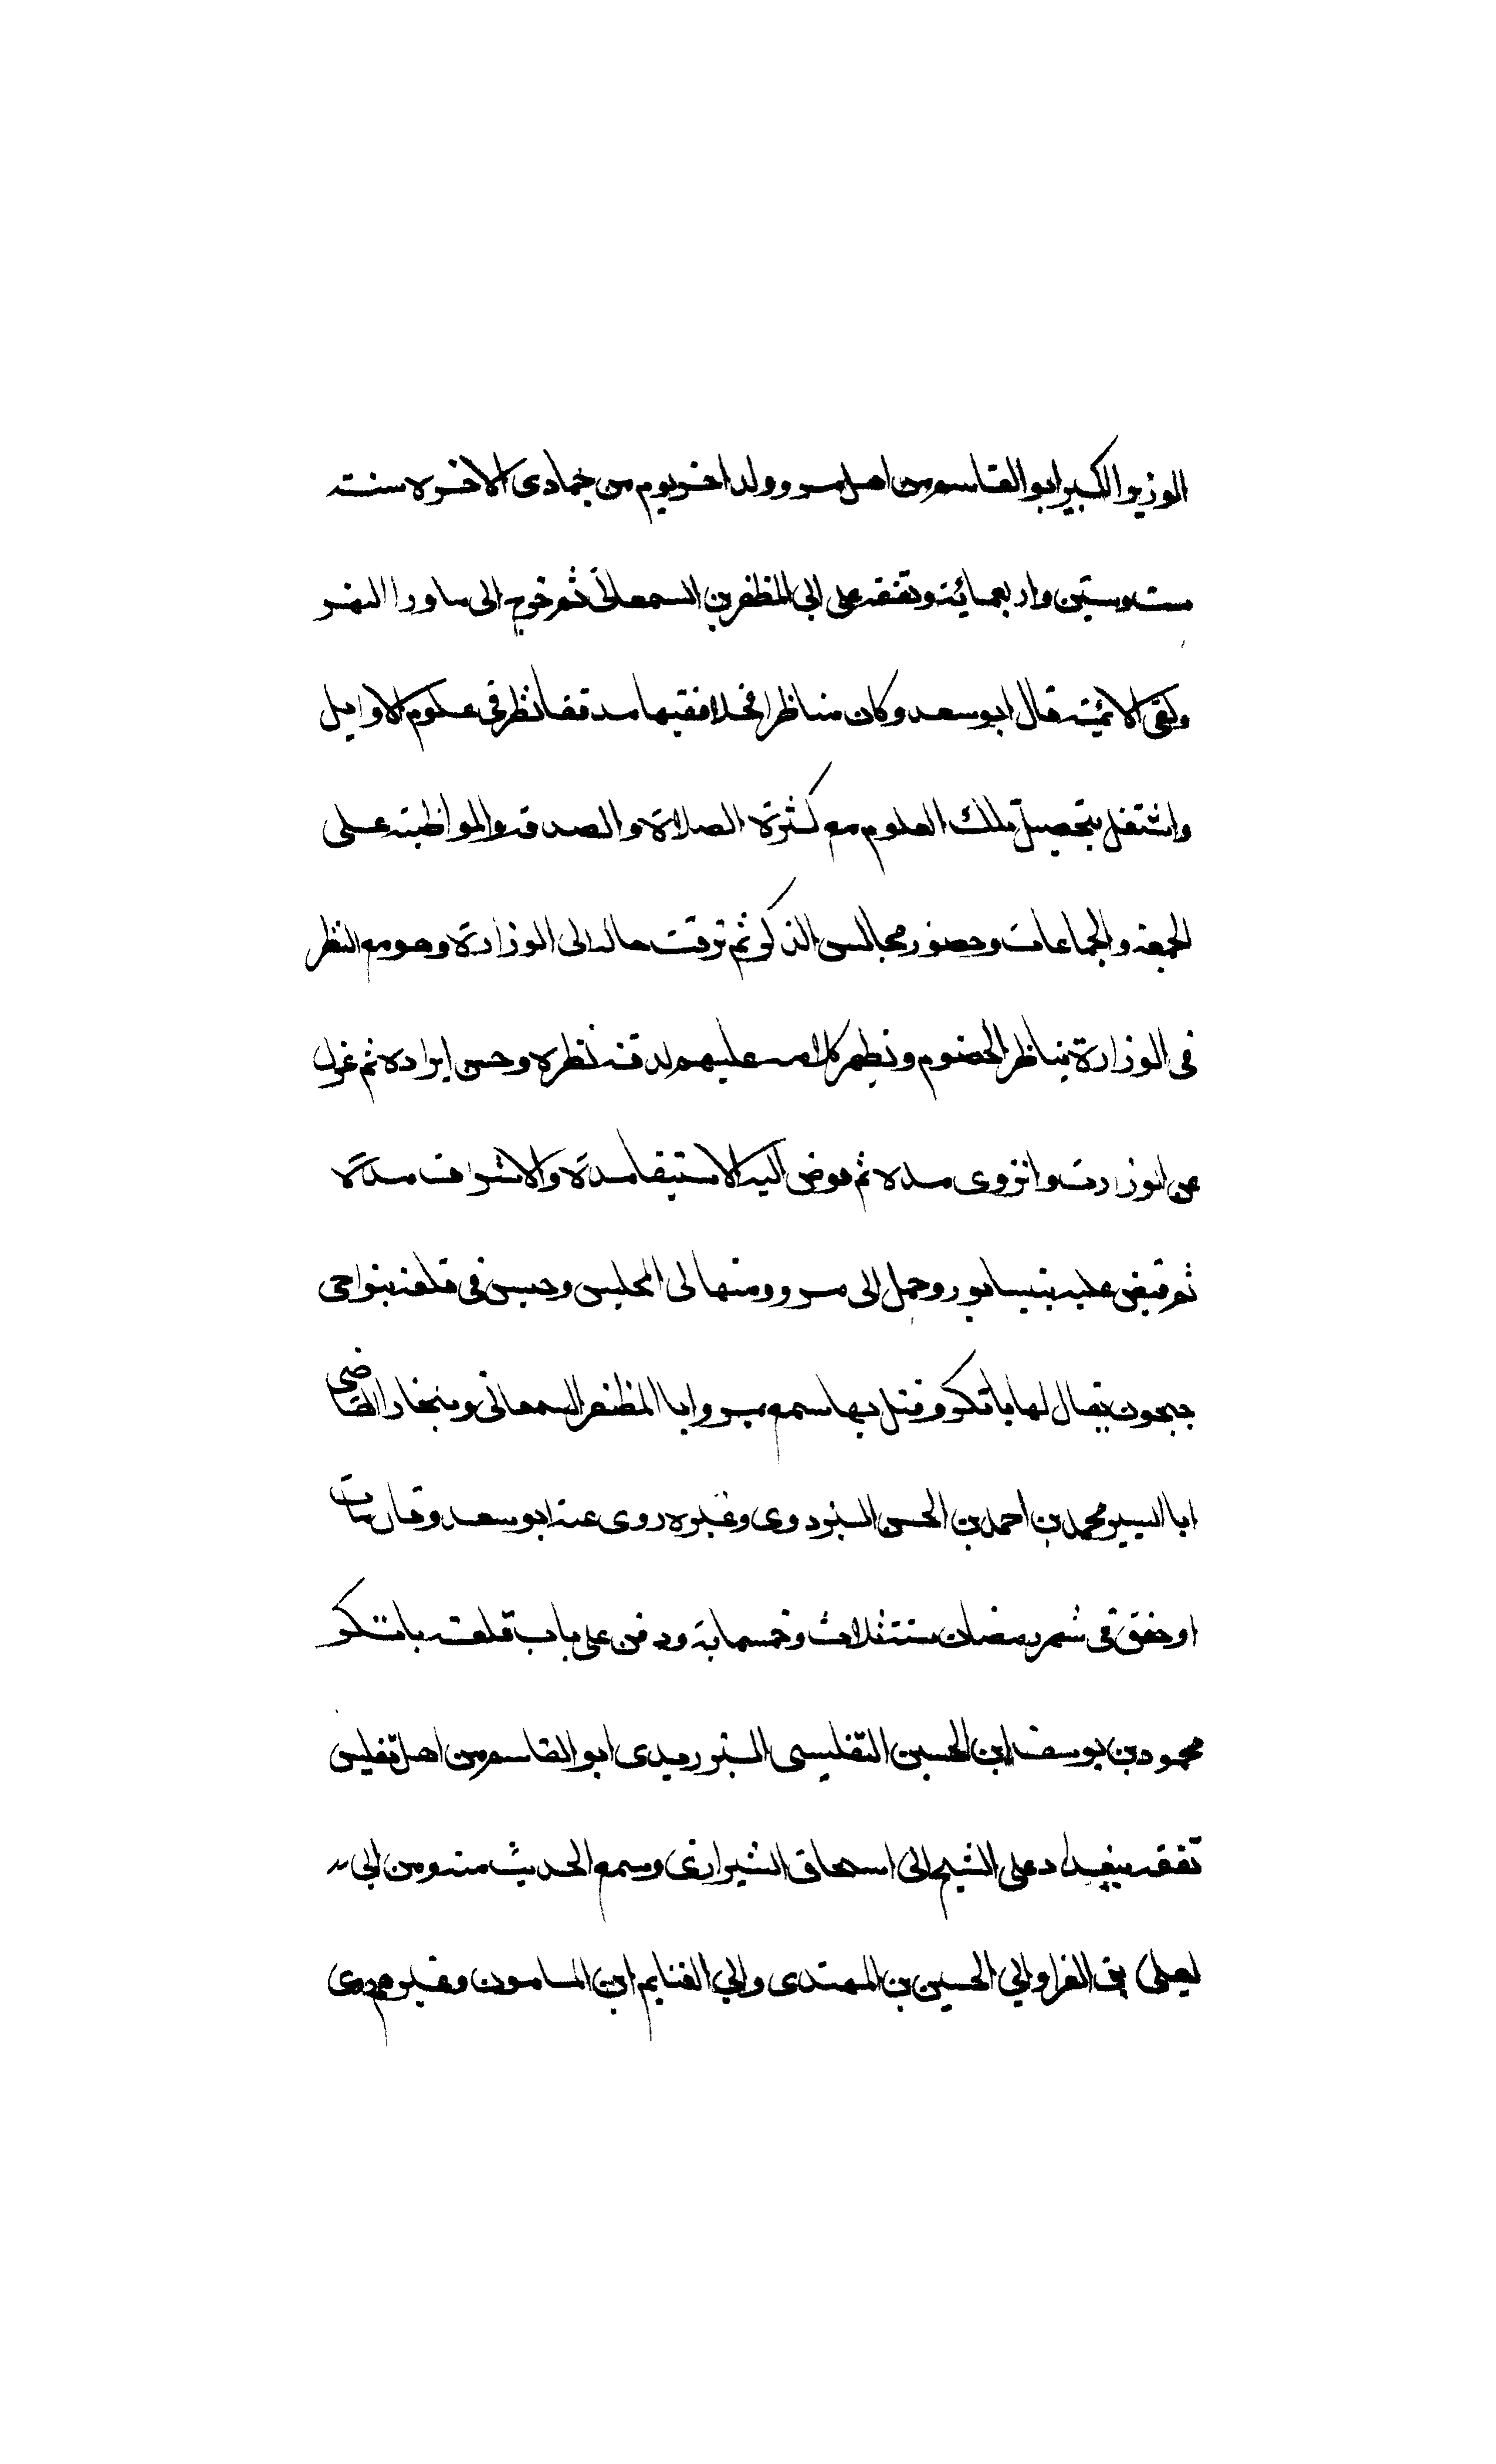 الوزير الكبير ابو القاسم من اهل مرو ولد اخر يوم من جمادى الاخره سنته
ست وستين واربعمائة وتفقه على ابي المظفر بن السمعاني ثم خرج الى ماورا النهر
ولقى الائمة قال ابو سعد وكان مناظرا فحلا فقيها مدققا نظر فى علوم الاوايل
واشتغل بتحصيل تلك العلوم مع كثرة الصلاة والصدقة والمواظبة على
الجمعة والجماعات وحضور مجالس الذكر ثم ترقت حاله الى الوزارة وهو مع النظر
فى الوزارة يناظر الخصوم ويظهر كلامه عليهم لدقة نظره وحسن ايراده ثم عزل
عن الوزارت وانزوى مده ثم فوض اليه الاستيفا مدة والاشراف مدة
ثم قبض عليه بنيسابور وحمل الى مرو ومنها لى المحلبس وحبس فى قلعة بنواحى
جيحون يقال لها باتكر وقتل بها سمع بمرو ابا المظفر السمعانى وببخارا القاضى
ابا اليسر محمد بن احمد بن الحسن البزدوى وغيره روى عنه ابو سعد وقال مات
او خنق فى شهر رمضان سنة ثلاث وخمسماية ودفن على باب قلعة باتكر
محمود بن يوسف ابن الحسين التفليسى البزريدى ابو القاسم من اهل تفليس
تفقه ببغداد على الشيخ ابى اسحاق الشيرازى وسمع الحديث منه ومن ابى
يعلى بن الفرا وابي الحسين بن المهتدى وابي الغنايم ابن المامون وغيرهم روى